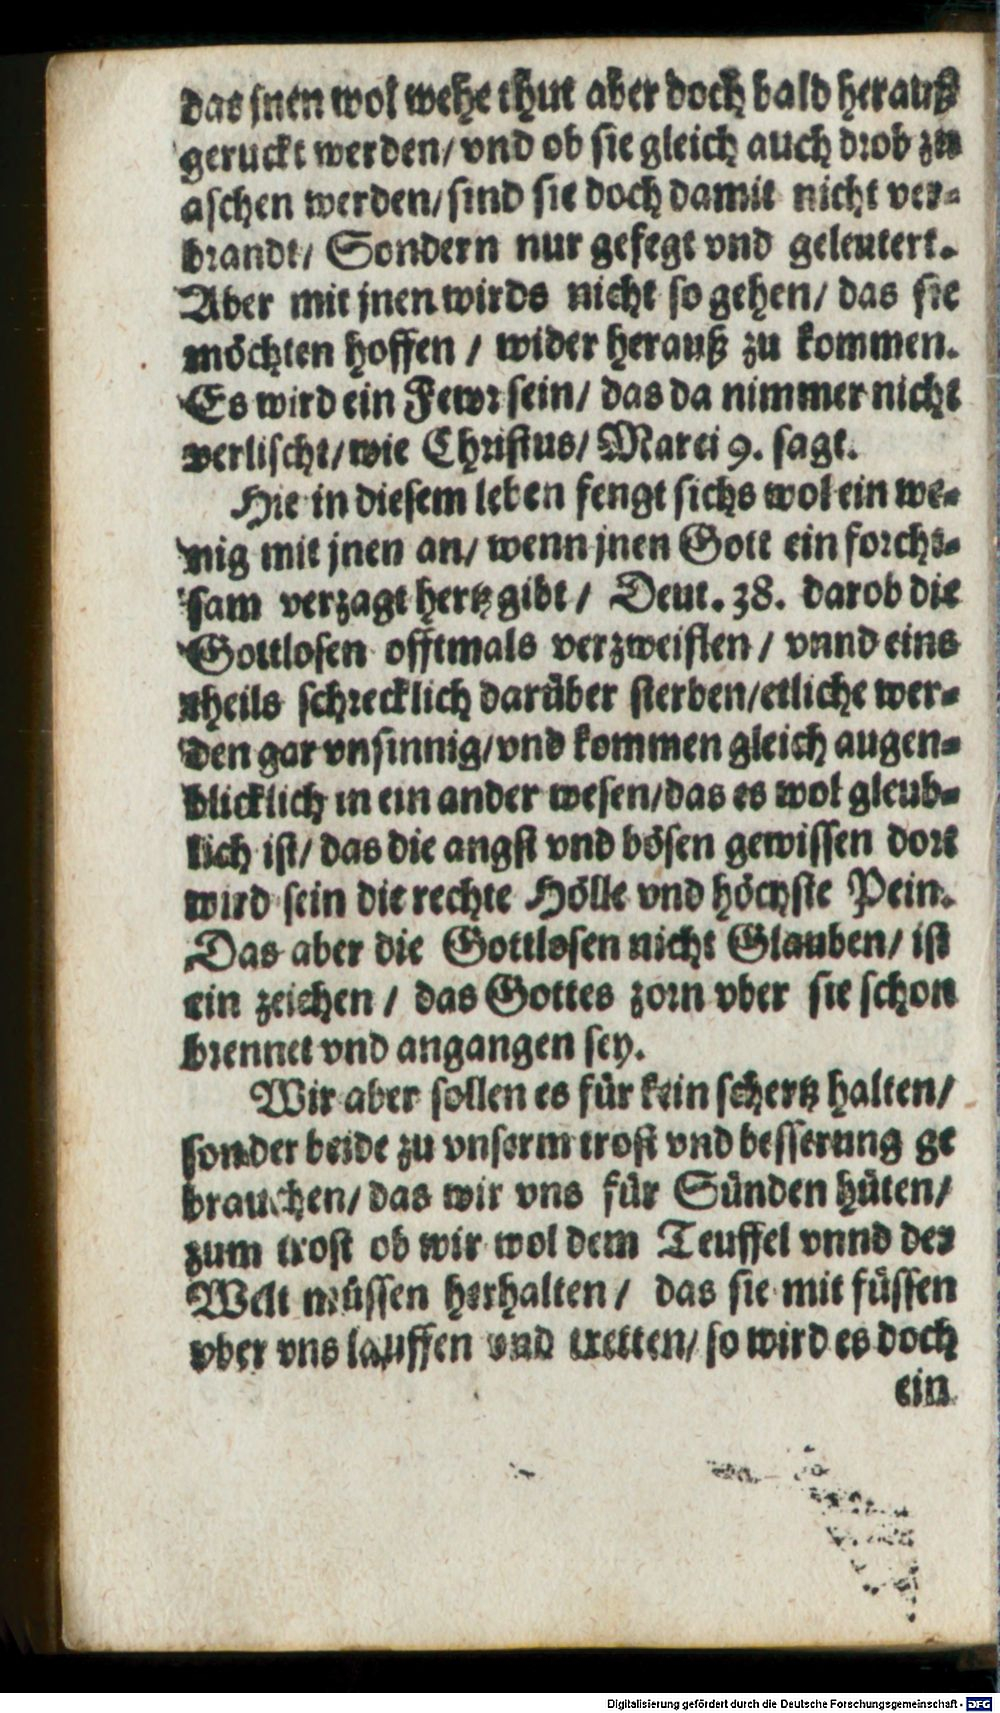 das jnen wol wehe thut aber doch bald herauß
geruckt werden/ vnd ob sie gleich auch drob zu
aschen werden/ sind sie doch damit nicht ver-
brandt/ Sondern nur gefegt vnd geleutert.
Aber mit jnen wirds nicht so gehen/ das sie
möchten hoffen / wider herauß zu kommen.
Es wird ein Fewr sein/ das da nimmer nicht
verlischt/ wie Christus/ Marci 9. sagt.
Hie in diesem leben fengt sichs wol ein we-
nig mit jnen an/ wenn jnen Gott ein forcht-
sam verzagt hertz gibt / Deut. 38. darob die
Gottlosen offtmals verzweiflen / vnnd eins
theils schrecklich darüber sterben/ etliche wer-
den gar vnsinnig/ vnd kommen gleich augen-
blicklich in ein ander wesen/ das es wol gleub-
lich ist/ das die angst vnd bösen gewissen dort
wird sein die rechte Hölle vnd höchste Pein.
Das aber die Gottlosen nicht Glauben/ ist
ein zeichen / das Gottes zorn vber sie schon
brennet vnd angangen sey.
Wir aber sollen es für kein schertz halten/
sonder beide zu vnserm trost vnd besserung ge
brauchen/ das wir vns für Sünden hüten/
zum trost ob wir wol dem Teuffel vnnd der
Welt müssen herhalten / das sie mit füssen
vber vns lauffen vnd tretten/ so wird es doch
ein
Digitalisierung gefördert durch die Deutsche Forschungsgemeinschaft - DFG